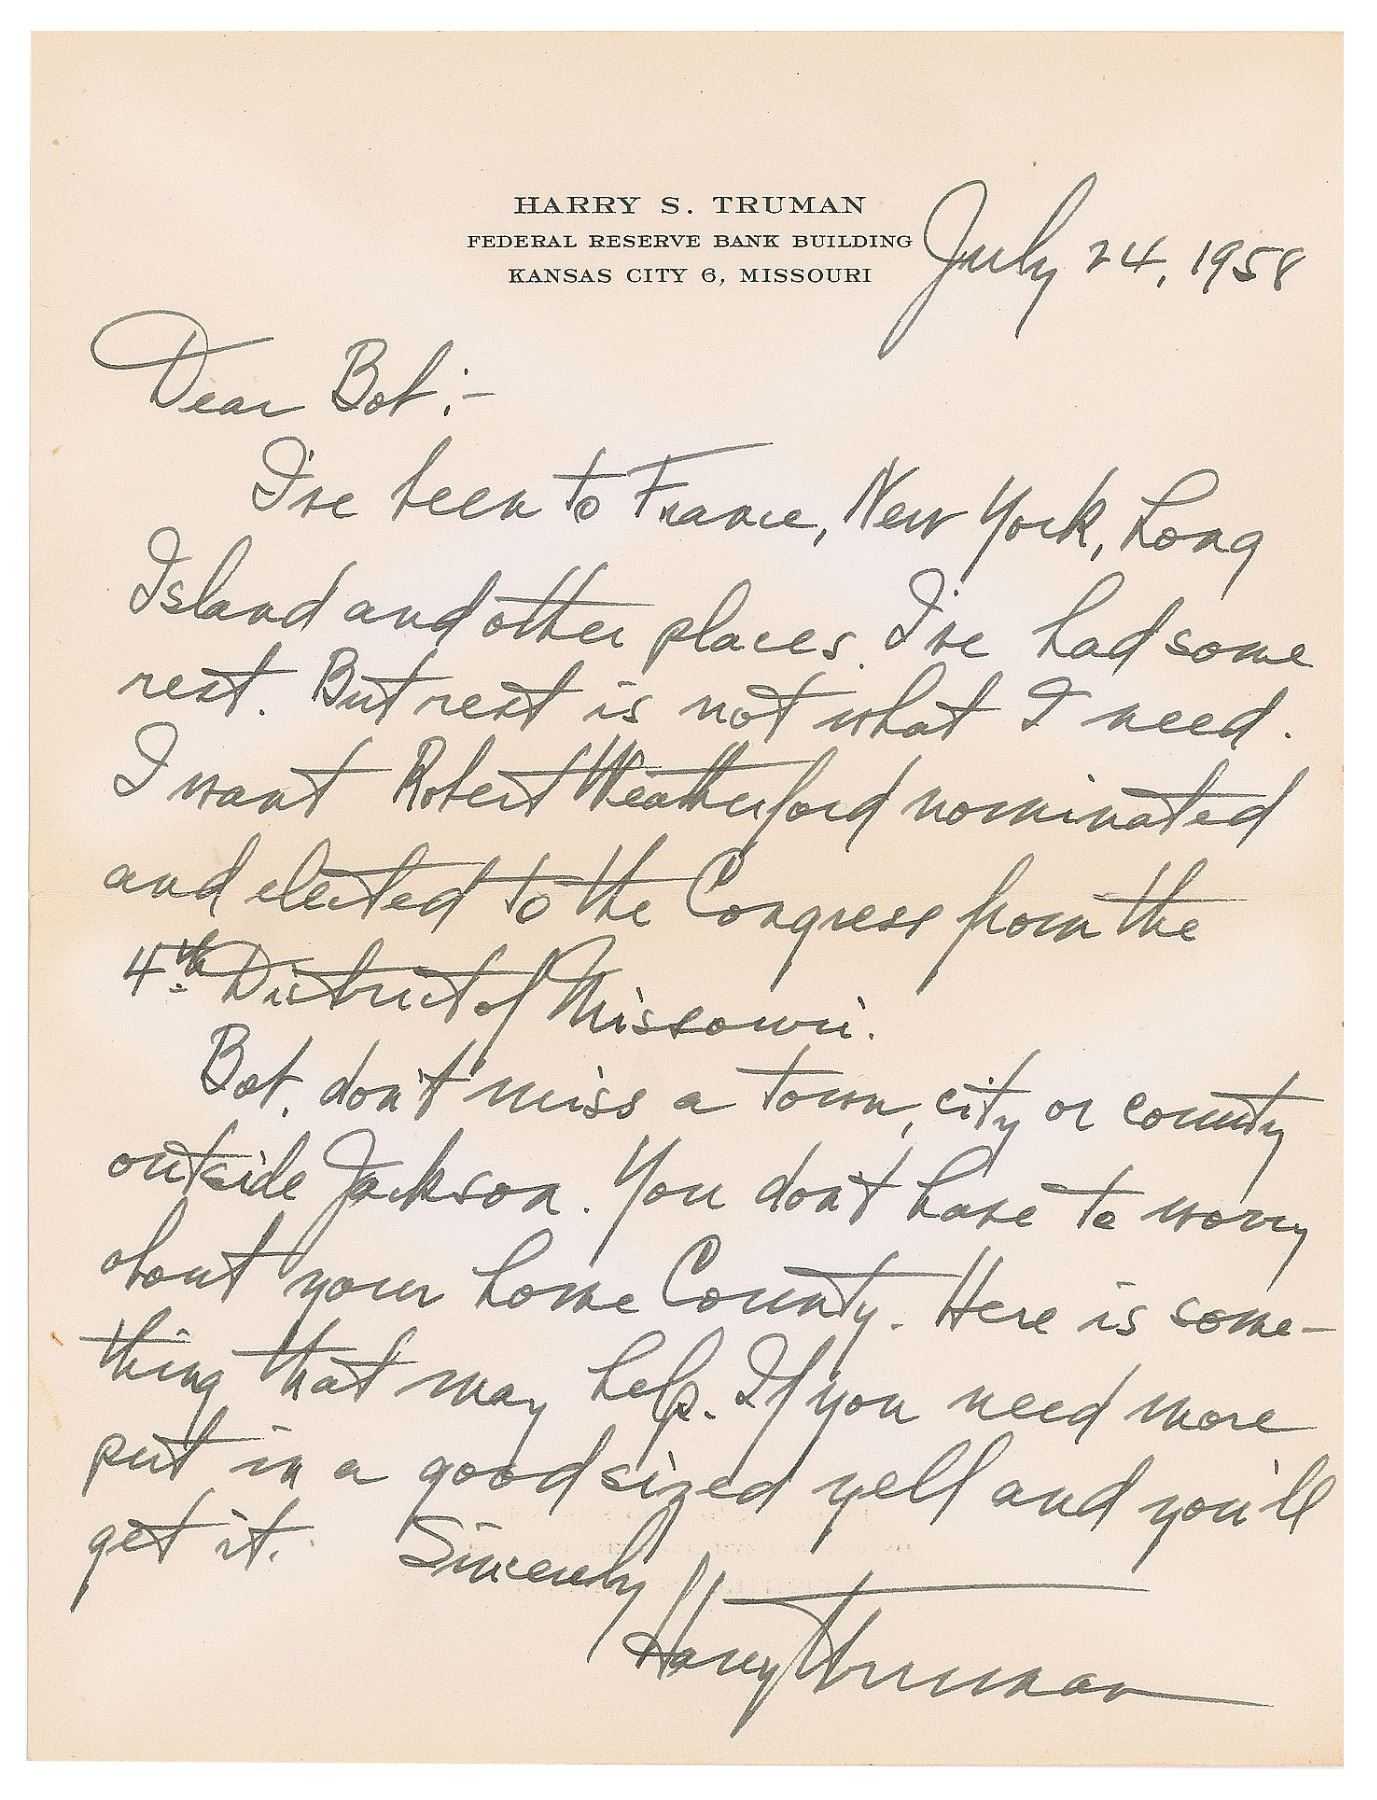 HARRY S. TRUMAN
FEDERAL RESERVE BANK BUILDING
KANSAS CITY 6, MISSOURI
July 24, 1958
Dear Bob:-
I've been to France, New York, Long
Island and other places. I've had some
rest. But rest is not what I need.
I want Robert Weatherford nominated
and elected to the Congress from the
4th District of Missouri.
Bob, don't miss a town, city or county
outside Jackson. You don't have to worry
about your home County. Here is some-
thing that may help. If you need more
put in a good sized yell and you'll
get it. Sincerely
Harry Truman